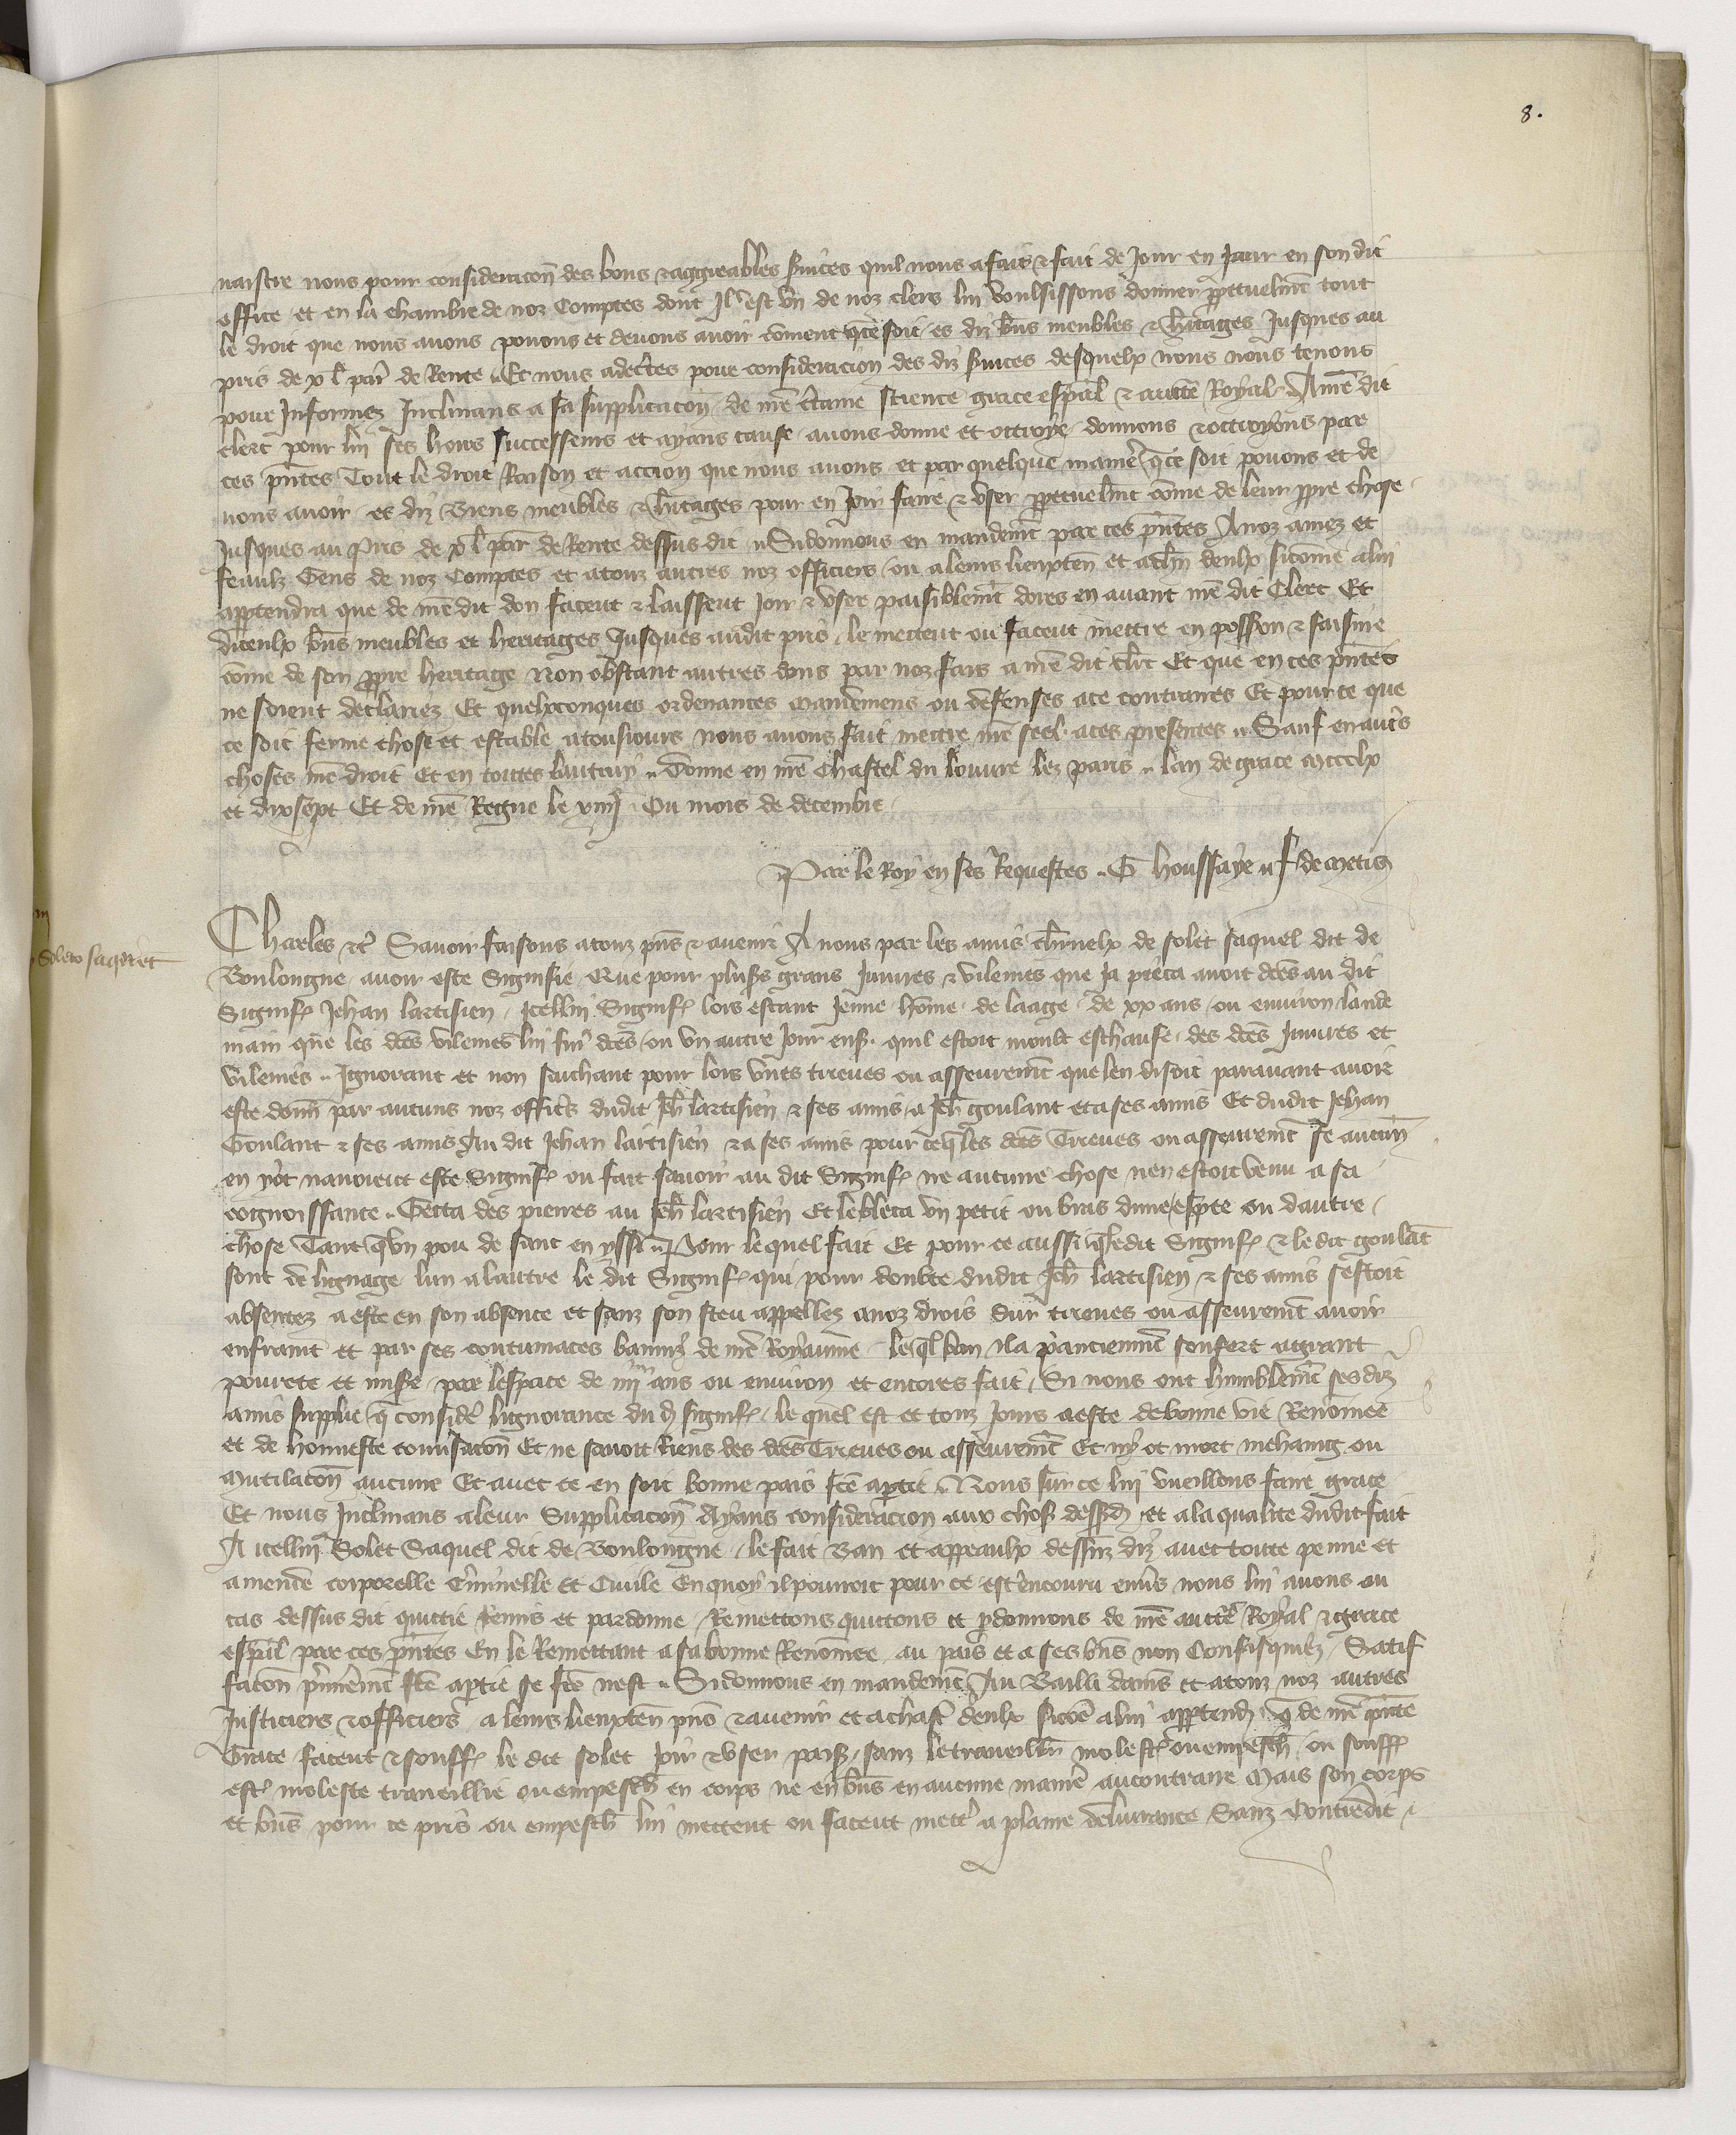 8.
naistre nous pour consideracōn des bons & aggreables s̄uices quil nous a fais & fait de Jour en Jour en son dit
office et en la chambre de noz Comptes dont Il est vn de noz clers lui voulsissons donner ꝑpetuelmēt tout
le droit que nous auons pouons et deuons auoir cōment q̄ ce soit es diz biēs meubles & h̄itages Jusques au
pris de x l' par̄ de Rente Et nous adecertes pour consideracion des diz s̄uices desquelx nous nous tenons
pour Informez Inclinans a sa supplicacōn de nr̄e c̄taine science grace esp̄al & auctē Royal A nr̄e dit
clerc pour lui ses hoirs successeurs et ayans cause auons donne et ottroye donnons & ottroyons par
ces p̄ntes Tout le droit Raison et accion que nous auons et par quelque manier̄ q̄ ce soit pouons et de
uons auoir es diz Biens meubles & h̄itages pour en Joir faire & vser ꝑpetuelmt cōme de leur ꝓpre chose
Jusques au Pris de x l' par̄ de Rente dessus dit Si donnons en mandemt par ces p̄ntes A noz amez et
feaulx Gens de noz Comptes et a touz autres noz officiers ou a leurs lieuxten̄ et a ch̄un deulx si cōme a lui
appartendra que de nr̄e dit don facent & laissent Joir & vser paisiblemt dores en auant nr̄e dit Clerc Et
diceulx biēs meubles et heritages Jusques audit pris le mettent ou facent mettre en possion & saisine
cōme de son ꝓpre heritage Non obstant autres dons par noz fais a nr̄e dit clerc Et que en ces p̄ntes
ne soient declariez Et quelxconques ordenances mandemens ou defenses a ce contraires Et pour ce que
ce soit ferme chose et estable a tousiours nous auons fait mettre nr̄e seel a ces presentes Sauf en aut̄s
choses nr̄e droit Et en toutes lautruy Donne en nr̄e Chastel du louure lez paris lan de grace mccclx
et dixsept Et de nr̄e Regne le xiiij Ou mois de decembre
Par le Roy en ses Requestes G houssaye f de metis
Solet saq̄t
Charles &c̄ Sauoir faisons a touz p̄ns & auenir A nous par les amis charnelx de solet saquel dit de
Boulongne auoir este Signifie Que pour plus̄s grans Iniures & vilenies que Ja pieca auoit dc̄es au dit
Signif. Jehan lartisien Icellui Signif. lors estant Jeune hōme de laage de xx ans ou enuiron lande
main que les dc̄es vilenies lui fur̄ dc̄es ou vn autre Jour ens. quil estoit moult eschaufe des dc̄es Iniures et
vilenies Ignorant et non sachant pour lors vnes treues ou asseuremt que len disoit parauant auoir
este donn̄ par aucuns noz offic̄s dudit Jeh̄ lartisien & ses amis a Jeh̄ goulant et a ses amis Et dudit Jehan
Goulant & ses amis Au dit Jehan lartisien & a ses amis pour ce q̄ les dc̄es Treues ou asseuremt se aucun̄
en y ot nauoient este Signif. ou fait sauoir au dit Signif. ne aucune chose nen estoit venu a sa
cognoissance Getta des pierres au Jeh̄ lartisien Et le bleca vn petit ou bras dune espee ou dautre
chose Tant q̄ vn pou de sanc en yssi Pour le quel fait Et pour ce aussi q̄ ledit Signif. & le dit goulāt
sont de lignage lun a lautre le dit Signif. qui pour doubte dudit Jeh̄ lartisien & ses amis sestoit
absentez a este en son absence et sanz son sceu appellez a noz drois sur treues ou asseuremt auoir
enfraint et par ses contumaces banniz de nr̄e Royaume le q̄l ban il a paciemmt souffert a grant
pourete et mis̄e par lespace de iiij ans ou enuiron et encores fait Si nous ont humblemt ses diz
amis supplie q̄ consider̄ lignorance du d̄ signif. le quel est et touz Jours a este de bonne vie Renōmee
et de honneste conu̇sacōn Et ne sauoit Riens des dc̄es Treues ou asseuremt Et ny ot mort mehaing ou
mutilacōn aucune Et auec ce en soit bonne pais fc̄e a partie Nous sur ce lui vueillons faire grace
Et nous Inclinans a leur Supplicacōn Ayans consideracion aux chos. dessusd̄ et a la qualite dudit fait
A icellui Solet Saquel dit de Boulongne le fait Ban et appeaulx dessus diz auec toute peine et
amende corporelle Criminelle et Ciuile En quoy il pouroit pour ce est̄ encouru enu̇s nous lui auons ou
cas dessus dit quittie Remis et pardonne Remettons quittons et ꝑdonnons de nr̄e auctē Royal & grace
esp̄al par ces p̄ntes En le Remettant a sa bonne Renōmee au pais et a ses biēs non Confisquiez Satif
facōn p̄mieremt fc̄e a partie se fc̄e nest Si donnons en mandemt Au Bailli damiēs et a touz noz autres
Justiciers & officiers a leurs lieuxten̄ p̄ns & auenir et a chasc̄ deulx si cōe a lui appartend̄ q̄ de nr̄e p̄nte
Grace facent & souff. le dit solet Joir & vser pais. sanz le traueillier molest̄ ou empesch̄ ou souff.
est̄ moleste traueillie ou empesch̄ en corps ne en biēs en aucune manier̄ au contraire Mais son corps
et biēs pour ce pris ou empesch̄ lui mettent ou facent mettr̄ a plaine deliurance Sanz Contredit